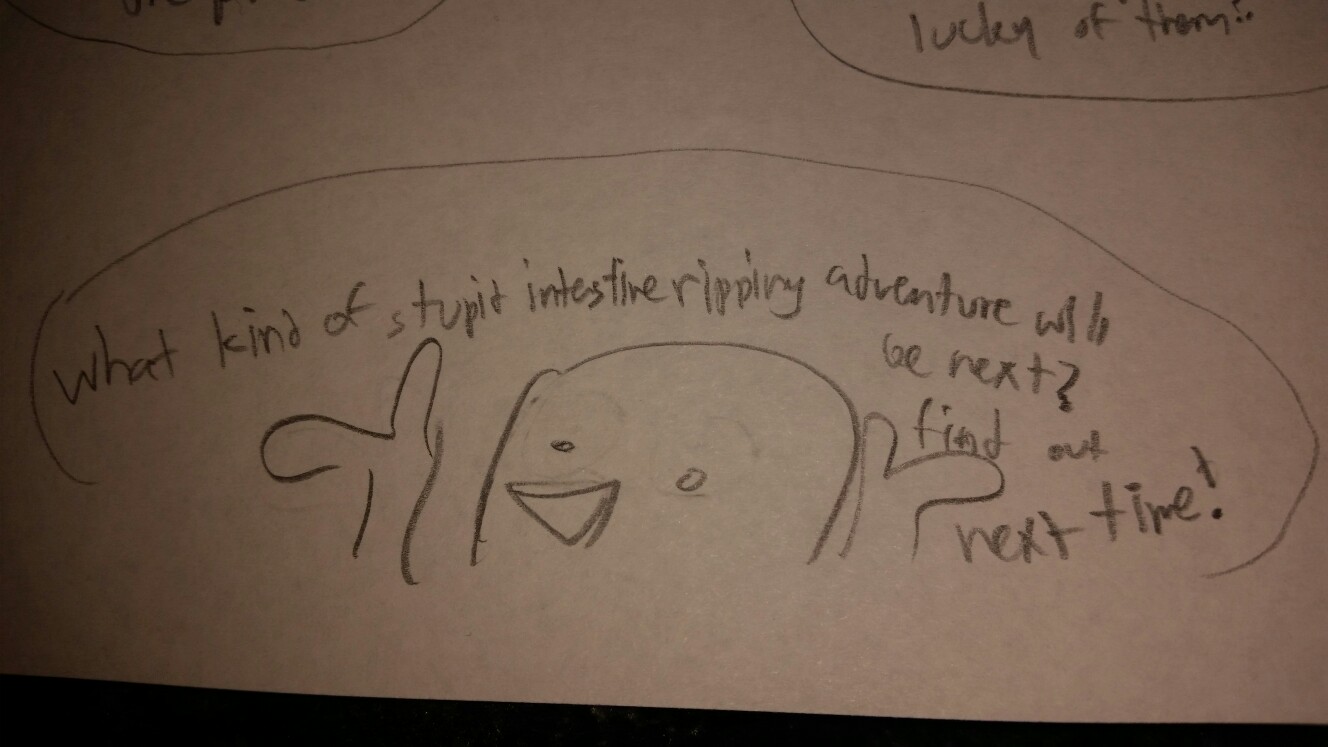 lucky of them!!
what kind of stupid intestine ripping adventure will
be next?
find out
next time!